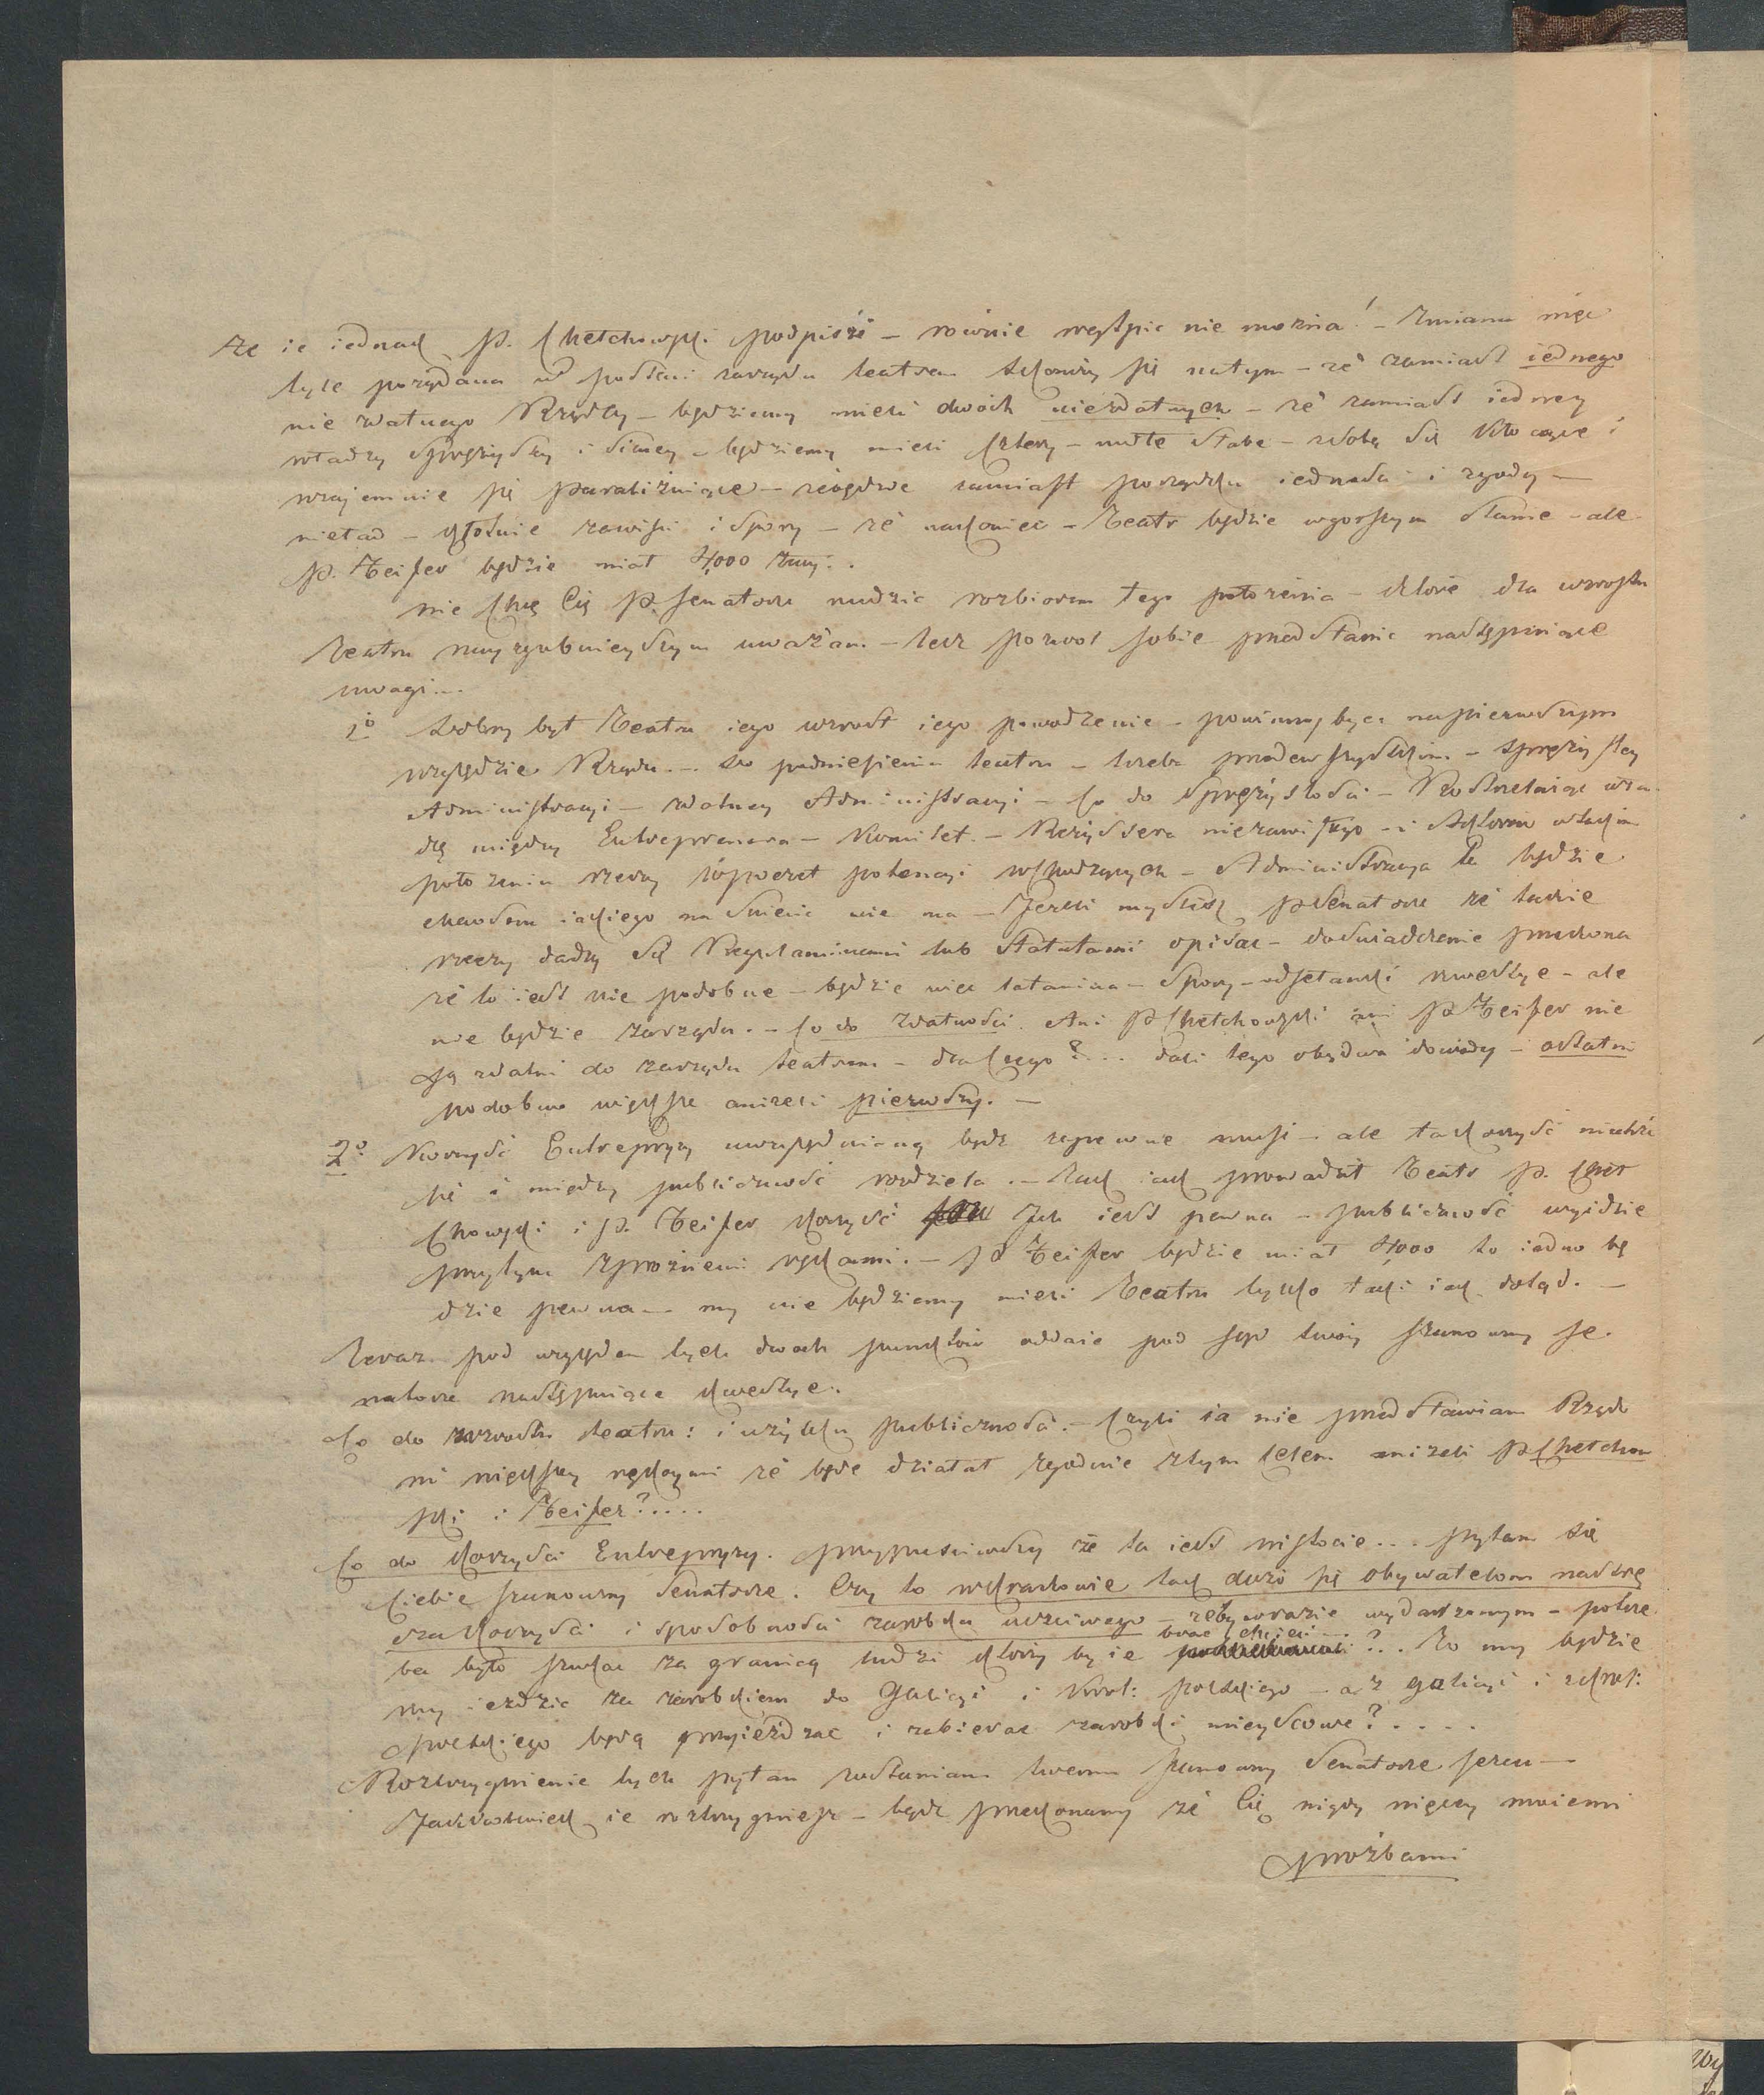 że ie iednak P. Chełchowski podpisze – równie wątpić nie można! – Zmiana więc
tyle pożądana w postaci zarządu teatrem skończy się na tym – że zamiast iednego
nie zdatnego Rządcy – będziemy mieli dwóch niezdatnych – że zamiast iedney
władzy sprężystey i silney – będziemy mieli cztery – małe słabe – z sobą się kłócące i
wzajemnie się paraliżuiące – zamiast porządku iedności i zgody –
nieład – zawiści i spory – że nakoniec – Teatr będzie w gorszym stanie – ale
P. Meifer będzie miał 4,000
nie chcę Cię P. Senatorze nudzić rozbiorem tego położenia – które dla wzrostu
Teatru nayzgubnieyszym uważam – lecz pozwol sobie przedstawić następuiące
uwagi...
1º Dobry byt Teatru iego wzrost iego powodzenie – powinny być napierwszym
względzie Rządu. – do podniesienia teatru – trzeba przedewszystkim – sprężystey
Administracyi – zdatney Administracyi – Co do sprężystości – wła
dzę między Entreprenera – Komitet – Reżyssera niezawisłego – i Aktorów w takim
położeniu rzeczy potencyi wchodzących – Administracya ta będzie
chaosem iakiego na świecie nie ma – Jeżeli myślisz P Senatorze że takie
rzeczy dadzą się Regulaminami lub statutami opisać – doświadczenie przekona
że to iest nie podobne – będzie więc łatanina – spory – ale
nie będzie zarządu. – Co do zdatności. Ani P Chełchowski ani P Meifer nie
są zdatni do zarządu teatrem – dlaczego?.... dali tego obydwa dowody – ostatni
podobno większe aniżeli pierwszy. –
2º Korzyść Entrepryzy uwzględnioną być zapewne musi – ale ta korzyść niechże
się i między publiczność rozdziela. – Tak iak prowadził Teatr P. Cheł
chowski i P. Meifer korzyść Ich iest pewna – publiczność wyidzie
przytym z próżnemi rękami. – P Meifer będzie miał 4,000 to iedno bę
dzie pewna – my nie będziemy mieli Teatru tylko taki iak dotąd. –
Teraz pod względem tych dwoch punktów oddaie pod sąd twóy szanowny Se
natorze następuiące kwestye.
Co do wzrostu teatru: i użytku publiczności. – Czyli ia nie przedstawiam Rządo
wi większey rękoymi że będe działał zgodnie z tym celem aniżeli P Chełchow
ski i Meifer?.....
Co do korzyści Entrepryzy. przypuściwszy że ta iest w istocie... pytam się
Ciebie szanowny Senatorze. Czy to w Krakowie tak dużo się obywatelom nastrę
cza korzyści i sposobności zarobku uczciwego – żeby w razie wydarzonym – potrze
ba było szukać za granicą ludzi którzy by ie brać chcieli?... To my będzie
my ieździć za zarobkiem do Galicyi i Król: polskiego – a z galicyi i z Król:
polskiego będą przyieżdzać i zabierać zarobki mieyscowe?....
Rozstrzygnienie tych pytań zostawiam twemu szanowny Senatorze sercu –
Jakkolwiek ie rozstrzygniesz – bądź przekonany że Cię nigdy więcey moiemi
prożbami